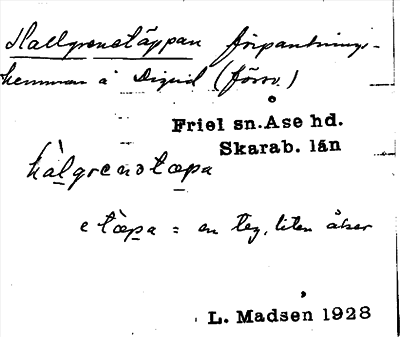 Hallgrenstäppan förpantnings-
hemman å (försv.)
Friel sn. Åse hd.
Skarab. län
hàlgrenstæpa
e tæpa = en teg, liten åker
L. Madsén 1928